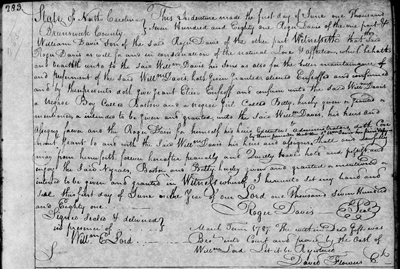 283
State of North Carolina } This Indenture made the first day of June one Thousand
Brunswick County } Seven Hundred and Eighty one Roger Davis of the one part &
William Davis Son of the said Roger Davis of the other part Witnesseth that said
Roger Davis as well for and in consideration of the natural Love & affection which he hath
and beareth unto the said William Davis his Son as also for the better maintenance
and preferment of the said Willm Davis, hath given granted aliened Enfeoffed and confirmed
and by these presents doth give grant Alien Enfeoff and confirm unto the said Willm Davis
a Negroe Boy Called Boston and a Negroe Girl Called Betty, hereby given & granted
mentioned & intended to be given and granted, unto the said Willm Davis, his heirs and
assigns forever and the Roger Davis for himself his heirs Executors Administrators doth Cove
nant grant to and with the said Willm Davis his heirs and assigns shall
may from henceforth forever hereafter peaceably and Quietly have hold and possess and
enjoy the said Negroes, Boston and Betty hereby given and granted & mentioned &
intended to be given and granted in Witness whereof I hereunto set my hand and
seal this first day of June in the year of our Lord one thousand Seven Hundred
and Eighty one Roger Davis Seal
Signed Sealed & delivered
in presence of
Willm E Lord
March Term 1787 The within Deed Gift was
Court and proved by the Oath of
William Lord Let it be Registered
David Flowers